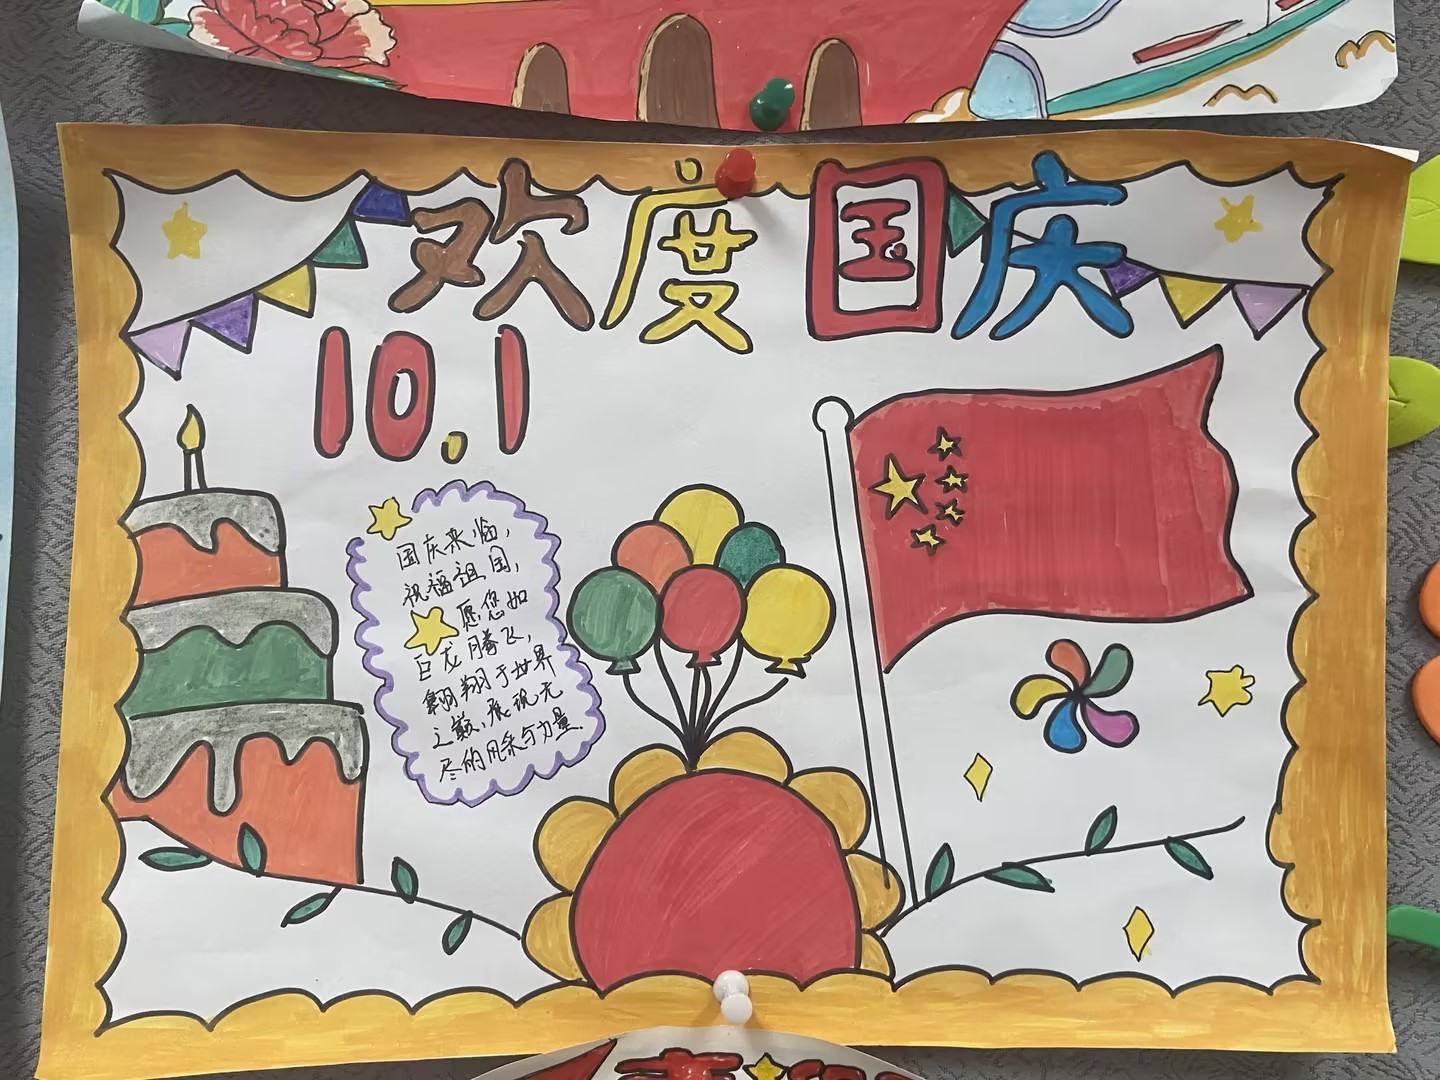 欢度国庆
10.1
国庆来临，
祝福祖国，
愿您如
巨龙腾飞，
翱翔于世界
之巅，展现无
尽的风采与力量